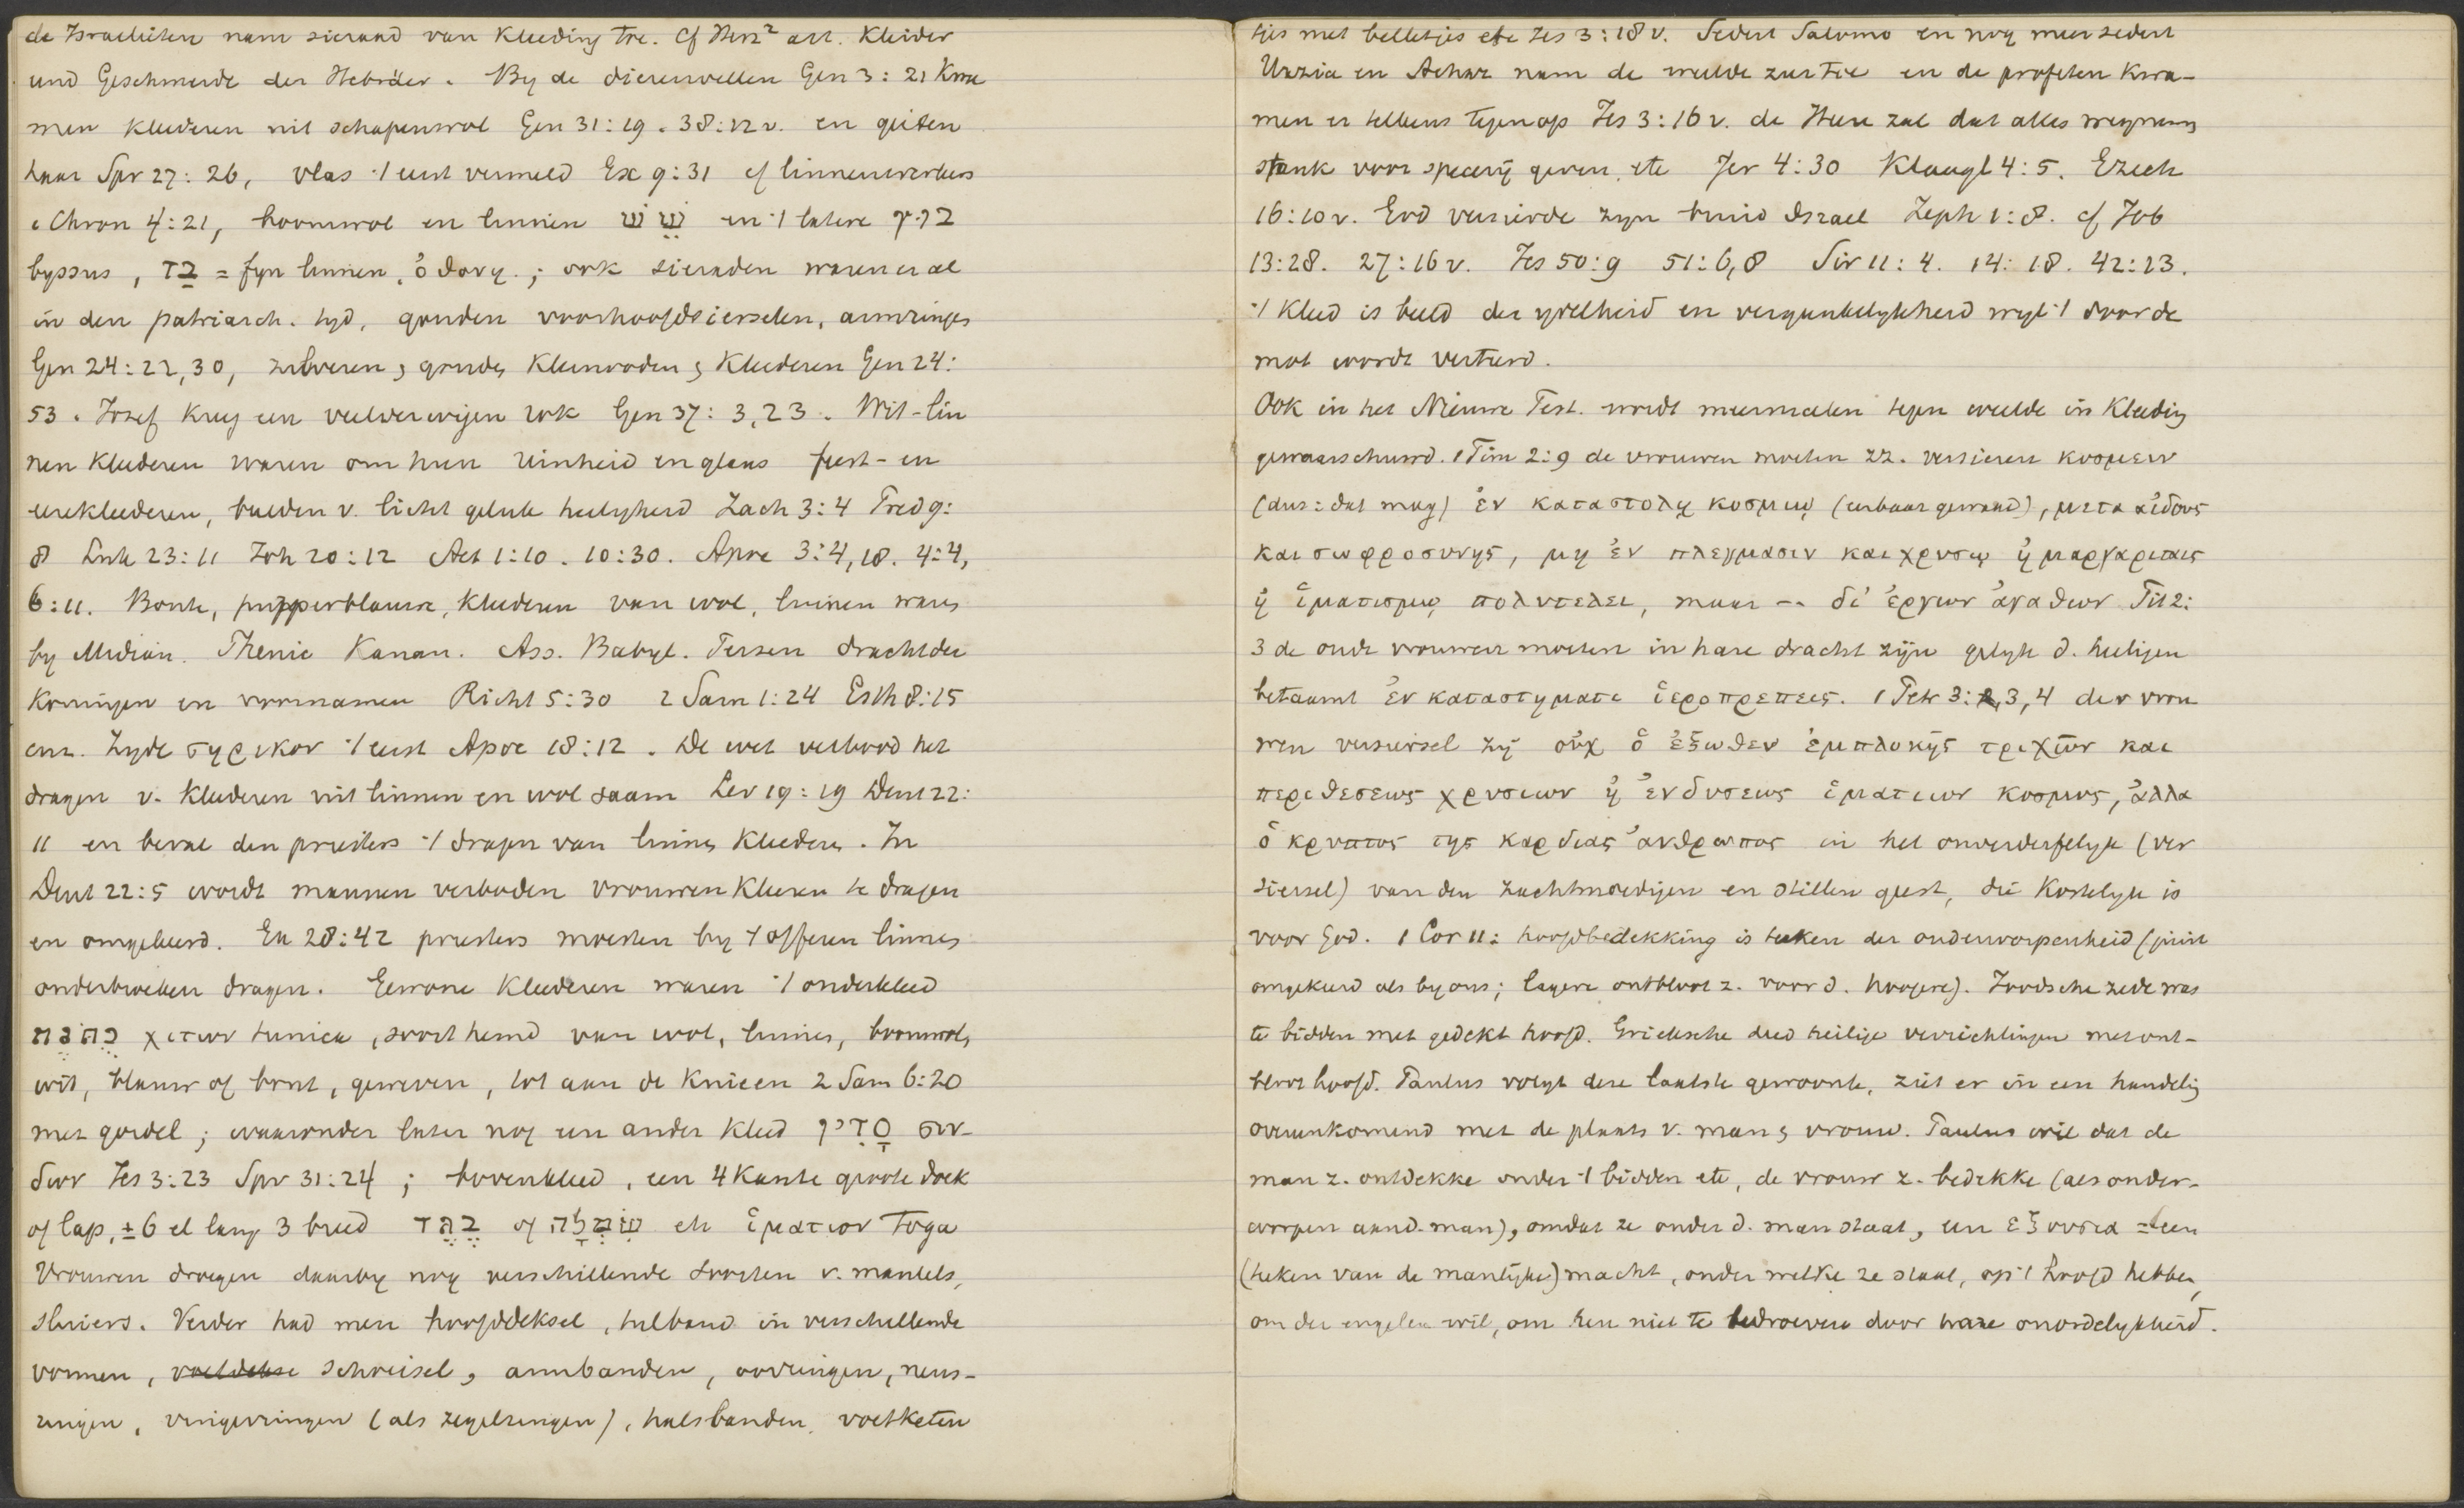 de Israelieten nam sieraad van kleeding toe. Cf Herz² art. Kleider
und Geschmeide der Hebräer. By de dierenvellen Gen 3:21 kwa
men kleederen uit schapenwol Gen 31:19. 38:12 v. en geiten
haar Spr 27:26, vlas 't eerst vermeld Ex 9:31 cf linnenwerkers
1 Chron 4:21, boomwol en linnen שֵׁשׁ en 't latere בוץ
byssus, בַד = fyn linnen, ὀθονη.; ook sieraden waren er al
in den patriarch. tyd, gouden voorhoofdsierselen, armringen
Gen 24:22,30, zilveren & gouden kleinooden & kleederen Gen 24:
53. Jozef kreeg een veelverwigen rok Gen 37:3,23. Wit-lin
nen kleederen waren om hun reinheid en glans feest- en
eerekleederen, beelden v. licht geluk heiligheid Zach 3:4 Pred 9:
8 Luk 23:11 Joh 20:12 Act 1:10. 10:30. Apoc 3:4,18. 4:4,
6:11. Bonte, purperblauwe, kleederen van wol, linnen waren
by Midian. Phenic Kanan. Ass. Babyl. Perzen dracht der
koningen en voornamen Richt 5:30 2 Sam 1:24 Esth 8:15
enz. Zyde σηρικον 't eerst Apoc 18:12. De wet verbood het
dragen v. kleederen uit linnen en wol saam Lev 19:19 Deut 22:
11 en beval den priesters 't dragen van linnen kleederen. In
Deut 22:5 wordt mannen verboden vrouwenkleeren te dragen
en omgekeerd. Ex 28:42 priesters moesten by 't offeren linnen
onderbroeken dragen. Gewone kleederen waren 't onderkleed
כתנת χιτων tunica, soort hemd van wol, linnen, boomwol,
wit, blauw of bont, geweven, tot aan de knieen 2 Sam 6:20
met gordel; waaronder later nog een ander kleed סָדִין σιν-
δων Jes 3:23 Spr 31:24; bovenkleed, een 4 kante groote doek
of lap, ± 6 el lang 3 breed בֶּגֶד of שִׂמְלָה etc ἱματιον Toga
Vrouwen droegen daarby nog verschillende soorten v. mantels,
sluiers. Verder had men hoofddeksel, tulband in verschillende
vormen, schoeisel, armbanden, oorringen, neus-
ringen, vingerringen (als zegelringen), halsbanden, voetketen
tjes met belletjes etc Jes 3:18 v. Sedert Salomo en nog meer sedert
Uzzia en Achaz nam de weelde zeer toe en de profeten kwa-
men er telkens tegen op Jes 3:16 v. de Heere zal dat alles wegnemen
stank voor specerij geven, etc Jer 4:30 Klaagl 4:5. Ezech
16:10 v. God versierde zyn bruid Israel Zeph 1:8. cf Job
13:28. 27:16 v. Jes 50:9 51:6,8 Sir 11:4. 14:18. 42:23.
't Kleed is beeld der ydelheid en vergankelykheid wyl 't door de
mot wordt verteerd.
Ook in het Nieuwe Test. wordt meermalen tegen weelde in kleeding
gewaarschuwd. 1 Tim 2:9 de vrouwen moeten zz. versieren κοσμειν
(dus: dat mag) ἐν καταστολῃ κοσμιῳ (eerbaar gewaad), μετα αἰδους
και σωφροσυνης, μη ἐν πλεγμασιν και χρυσῳ ἠ μαργαριταις
ἠ ἱματισμῳ πολυτελει, maar -- δι' ἐργων ἀγαθων Tit 2:
3 de oude vrouwen moeten in hare dracht zijn gelyk d. heiligen
betaamt ἐν καταστηματι ἱεροπρεπεις. 1 Petr 3:3,4 der vrou
wen versiersel zij οὐχ ὁ ἐξωθεν ἐμπλοκῆς τριχῶν και
περιθεσεως χρυσιων ἠ ἐνδυσεως ἱματιων κοσμος, ἀλλα
ὁ κρυπτος της καρδιας ἀνθρωπος in het onverderfelyk (ver
siersel) van den zachtmoedigen en stillen geest, die kostelyk is
voor God. 1 Cor 11: hoofdbedekking is teeken der onderworpenheid (juist
omgekeerd als by ons; lagere ontbloot z. voor d. hoogere). Joodsche zede was
te bidden met gedekt hoofd. Grieksche deed heilige verrichtingen met ont-
bloot hoofd. Paulus volgt deze laatste gewoonte, ziet er in een handeling
overeenkomend met de plaats v. man & vrouw. Paulus wil dat de
man z. ontdekke onder 't bidden etc, de vrouw z. bedekke (als onder-
worpen aan d. man), omdat ze onder d. man staat, een εξουσια = een
(teken van de manlijke) macht, onder welke ze staat, op 't hoofd hebben,
om der engelen wil, om hen niet te bedroeven door hare onordelykheid.